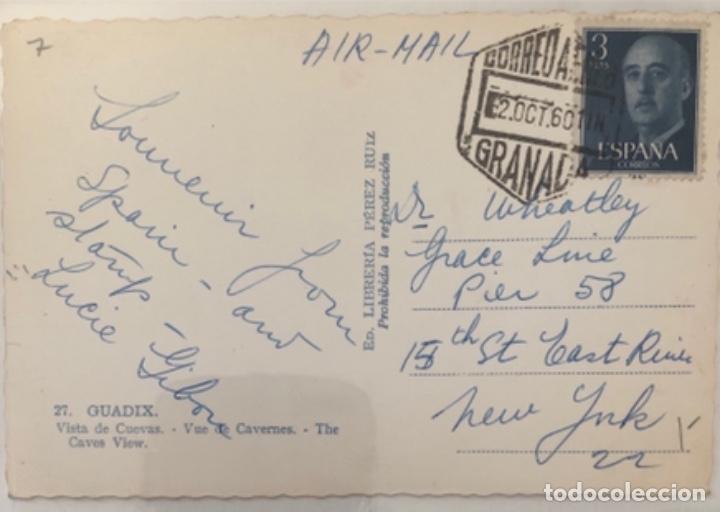 7
AIR-MAIL
CORREO AEREO
2.OCT.60 11N
GRANADA
3
PTAS
ESPAÑA
CORREOS
Souvenir from
Spain - and
stamp -
Lucie
ED. LIBRERÍA PÉREZ RUIZ
Prohibida la reproducción
Dr Wheatley
Grace Line
Pier 58
15th St East River
New York
22
27. GUADIX.
Vista de Cuevas. - Vue de Cavernes. - The
Caves View.
todocoleccion